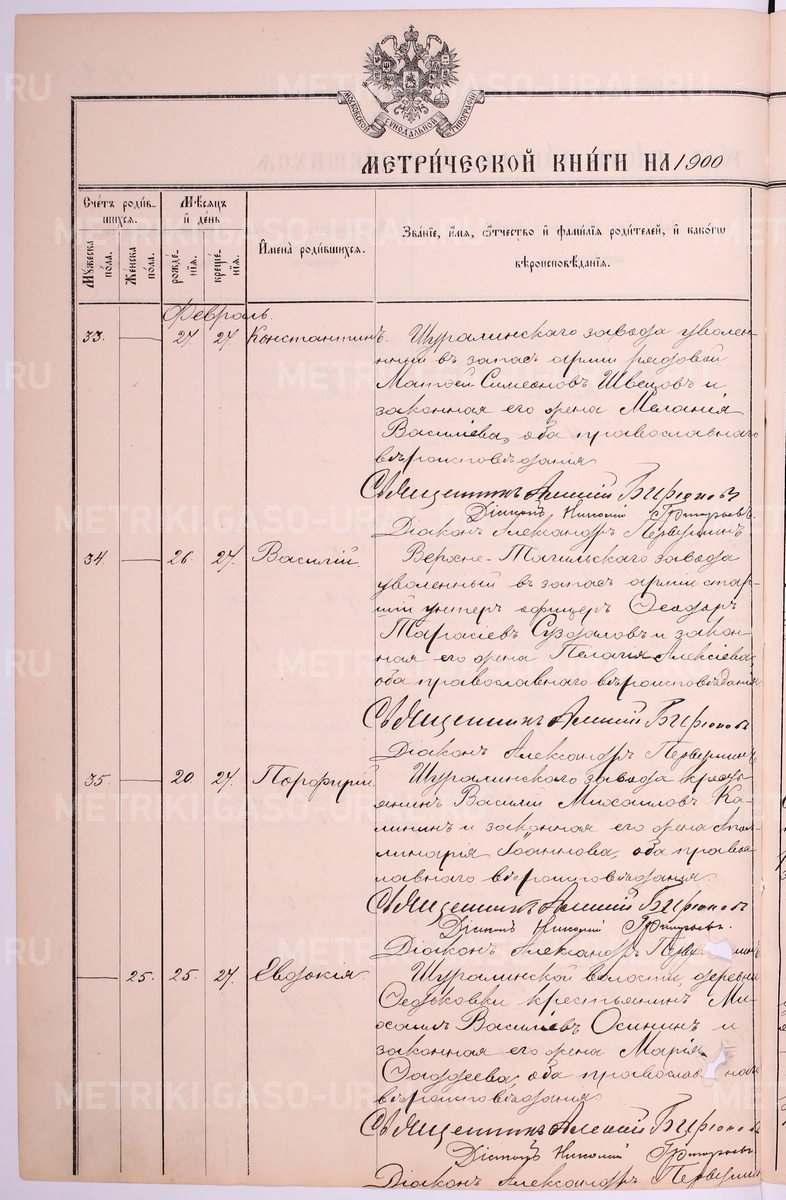 МОСКОВСКОЙ СѴНОДАЛЬНОЙ ТИПОГРАФІИ
МЕТРИ́ЧЕСКОЙ КНИ́ГИ НА 1900
Сче́тъ роди́в-
шихся.
Мѣ́сяцъ
и҆ де́нь
Мꙋ́жеска
по́ла.
Же́нска
по́ла.
рожде́-
нїя.
креще́-
нїя.
И҆мена̀ роди́вшихся.
Зва́нїе, и҆́мя, ѻ҆́тчество и҆ фами́лїя роди́телей, и҆ како́гѡ
вѣроисповѣ́данїя.
Февраль.
33. 24 24 Константинъ. Шуралинскаго завода уволен-
ный въ запасъ арміи рядовой
Матѳей Симеоновъ Швецовъ и
законная его жена Меланія
Василіева, оба православнаго
вѣроисповѣданія
Священникъ Алексій Бирюковъ
Николай
Діаконъ Александръ
34. 26. 27. Василій. Верхне-Тагильскаго завода
уволенный въ запасъ арміи стар-
шій унтеръ офицеръ Ѳеодоръ
Тарасіевъ Суздаловъ и закон-
ная его жена Пелагія Алексіева,
оба православнаго вѣроисповѣданія
Священникъ Алексій Бирюковъ
Діаконъ Александръ
35. 20. 27. Порфирій Шуралинскаго завода кресть-
янинъ Василій Михаиловъ Ка-
лининъ и законная его жена Апол-
линарія Іоаннова, оба право-
славнаго вѣроисповѣданія.
Священникъ Алексій Бирюковъ
Николай
Діаконъ Александръ
25. 25. 27. Евдокія. Шуралинской волости, деревни
Ѳедьковки крестьянинъ Ми-
хаилъ Василіевъ Осининъ и
законная его жена Марія
Ѳаддеева, оба православнаго
вѣроисповѣданія
Священникъ Алексій Бирюковъ
Николай
Діаконъ Александръ
METRIKI.GASO-URAL.RU